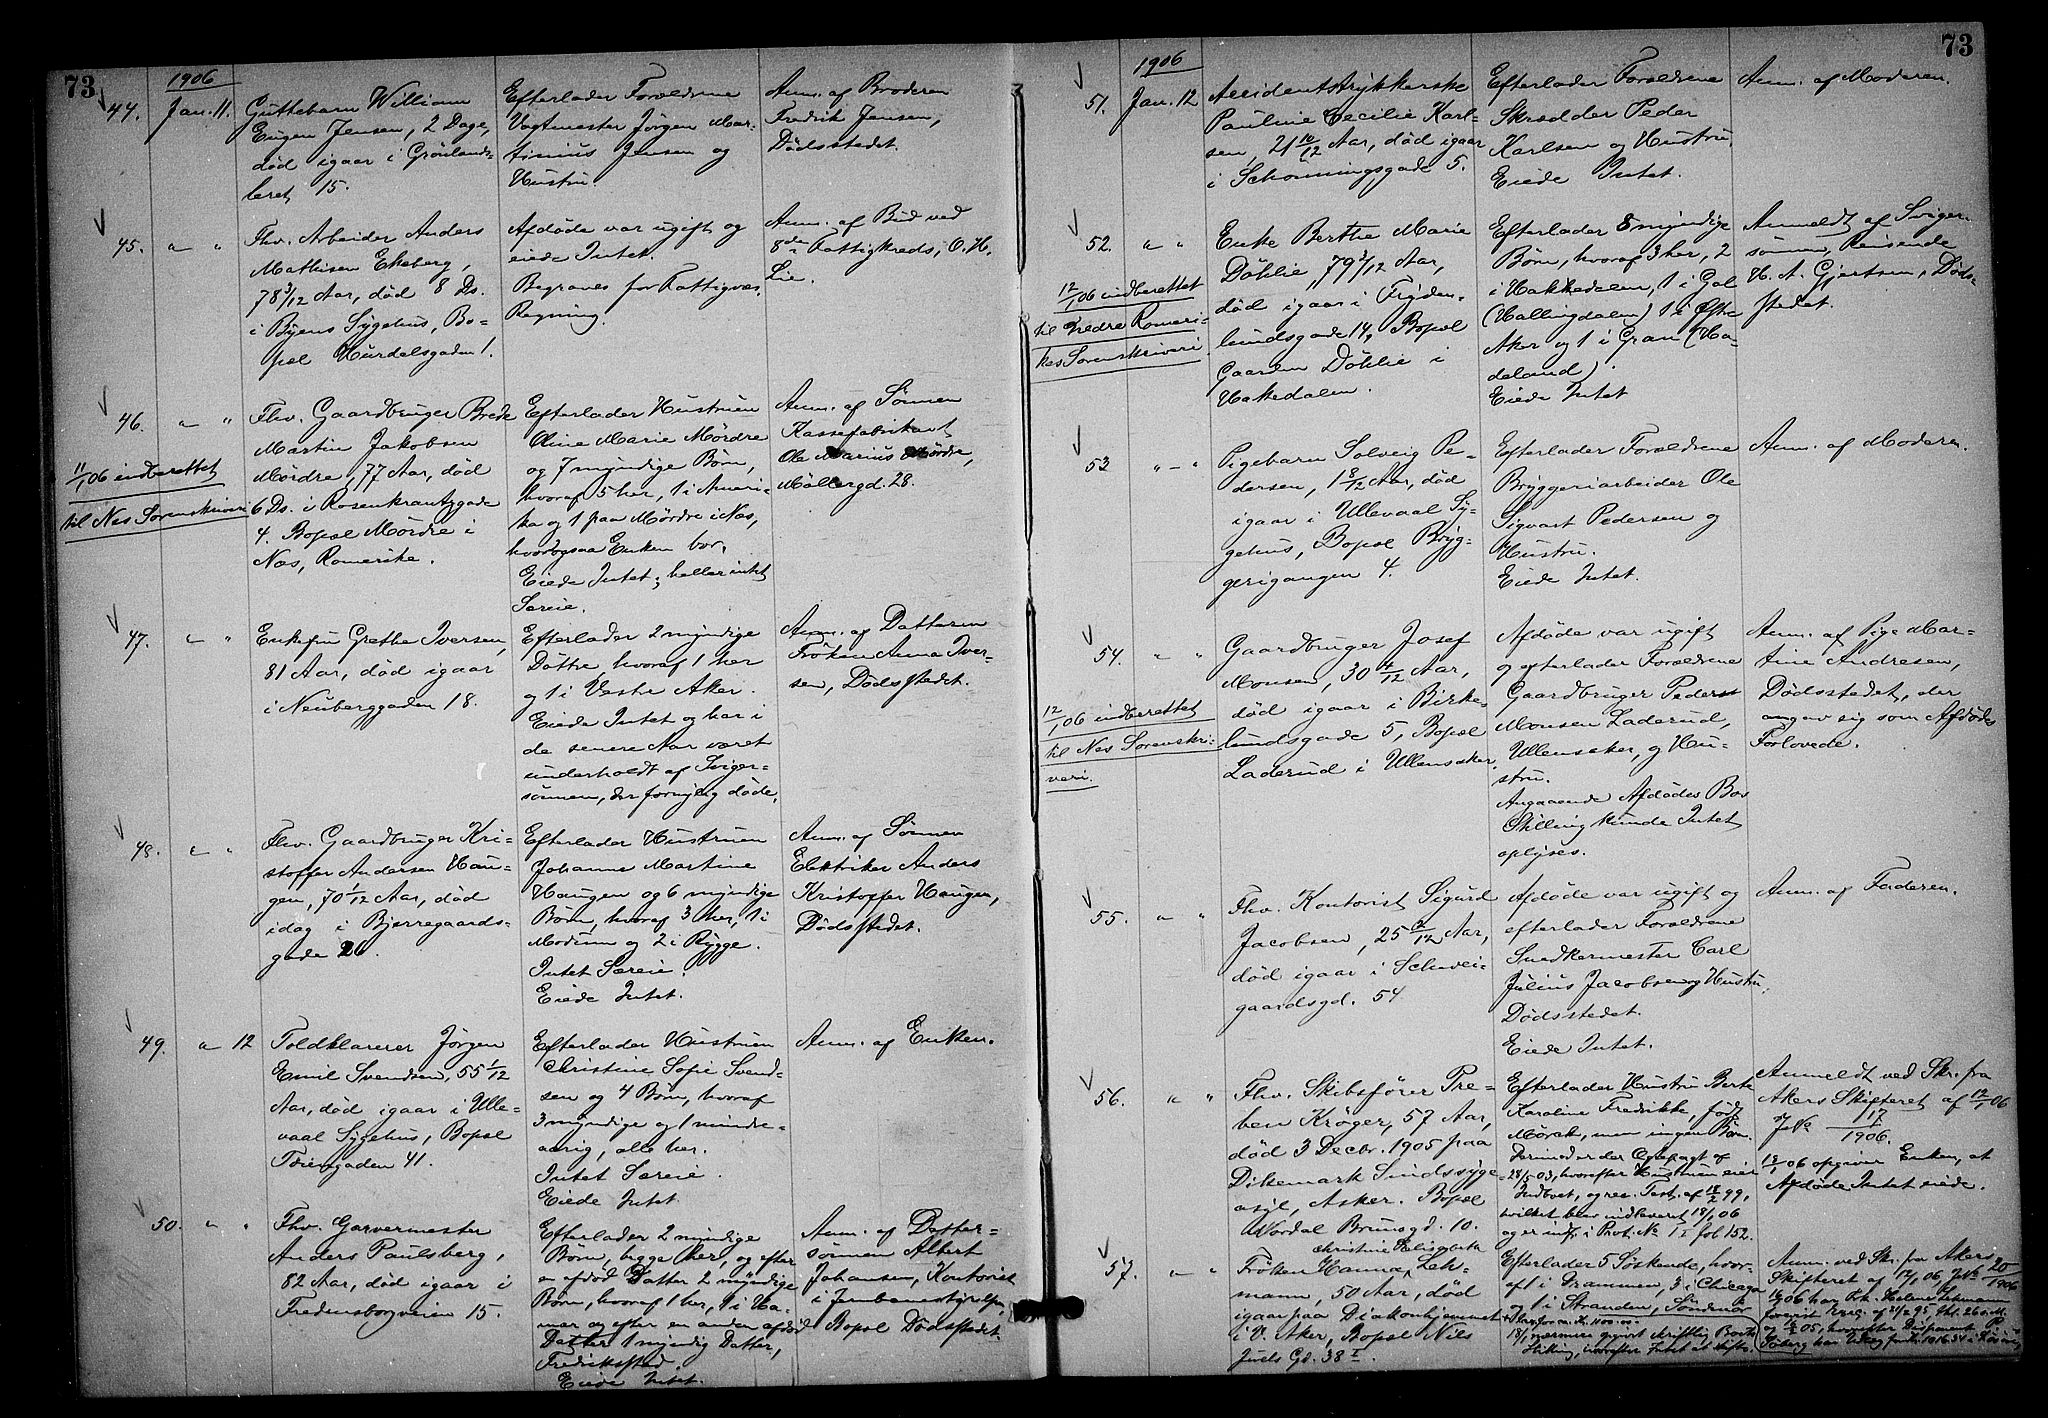 73
1906
44. Jan. 11. Guttebarn William
Eugen Jensen, 2 Dage,
død igaar i Grönlands-
leret 15.
Efterlader Forældrene
Vagtmester Jörgen Mar-
tinius Jensen og
Hustru.
Anm. af Broderen
Fredrik Jensen,
Dødsstedet.
45. " " Fhv. Arbeider Anders
Mathisen Ekeberg,
78 3/12 Aar, död 8 Ds.
i Byens Sygehus, Bo-
pæl Hurdalsgaden 1.
Afdøde var ugift og
eiede Intet.
Begraves for Fattigvæs.
Regning.
Anm. af Bud ved
8de Fattigkreds, O. H.
Lie.
46. " " Fhv. Gaardbruger Brede
Martin Jakobsen
Mørdre, 77 Aar, död
6 Ds. i Rosenkrantzgade
4. Bopæl Mørdre i
Nes, Romerike.
11/1 06 indberettet
til Nes Sorenskriveri
Efterlader Hustruen
Oline Marie Mördre
og 7 myndige Börn,
hvoraf 5 her, 1 i Ameri-
ka og 1 paa Mördre i Nes,
hvorogsaa Enken bor.
Eiede Intet; heller intet
Særeie.
Anm. af Sönnen
Kassefabrikant
Ole Marius Mördre,
Möllergd. 28.
47. " " Enkefru Grethe Iversen,
81 Aar, död igaar
i Neuberggaden 18.
Efterlader 2 myndige
Döttre hvoraf 1 her
og 1 i Vestre Aker.
Eiede Intet og har i
de senere Aar været
underholdt af Sviger-
sönnen, der fornylig døde.
Anm. af Datteren
Fröken Anna Iver-
sen, Dødsstedet.
48. " " Fhv. Gaardbruger Kri-
stoffer Andersen Hau-
gen, 70 1/12 Aar, død
idag i Bjerregaards-
gade 20.
Efterlader Hustruen
Johanne Martine
Haugen og 6 myndige
Börn, hvoraf 3 her, 1 i
Modum og 2 i Rygge.
Intet Særeie.
Eiede Intet.
Anm. af Sönnen
Elektriker Anders
Kristoffer Haugen,
Dødsstedet.
49. " 12 Toldklarerer Jörgen
Emil Svendsen, 55 1/12
Aar, död igaar i Ulle-
vaal Sygehus, Bopæl
Töiengaden 41.
Efterlader Hustruen
Christine Sofie Svend-
sen og 4 Börn, hvoraf
3 myndige og 1 mindre-
aarig, alle her.
Intet Særeie.
Eiede Intet
Anm. af Enken.
50. " " Fhv. Garvermester
Anders Paulsberg,
82 Aar, död igaar i
Fredensborgveien 15.
Efterlader 2 myndige
Börn, begge her, og efter
en afdöd Datter 2 myndige
Börn, hvoraf 1 her, 1 i Ha-
mar og efter en anden afdöd
Datter 1 myndig Datter,
Fredriksstad.
Eiede Intet.
Anm. af Datter-
sönnen Albert
Johansen, Kontorist
i Jernbanestyrelsen,
Bopæl Dødsstedet.
73
1906
51. Jan. 12 Accidentstrykkerske
Pauline Cecilie Karl-
sen, 21 10/12 Aar, död igaar
i Schonningsgade 5.
Efterlader Forældrene
Skrædder Peder
Karlsen og Hustru.
Eiede Intet.
Anm. af Moderen.
52. " " Enke Berthe Marie
Döhlie, 79 3/12 Aar,
död igaar i Frøden-
lundsgade 14, Bopæl
Gaarden Döhlie i
Hakedalen.
12/1 06 indberettet
til Nedre Romeri-
kes Sorenskriveri
Efterlader 8 myndige
Börn, hvoraf 3 her, 2
i Hakkedalen, 1 i Gol
(Hallingdalen) 1 i Østre
Aker og 1 i Gran (Ha-
deland).
Eiede Intet
Anmeldt af Sviger-
sönnen, Reisende
H. A. Gjertsen, Døds-
stedet.
53 " - " Pigebarn Solveig Pe-
dersen, 1 8/12 Aar, död
igaar i Ullevaal Sy-
gehus, Bopæl Bryg-
gerigangen 4.
Efterlader Forældrene
Bryggeriarbeider Ole
Sigvart Pedersen og
Hustru.
Eiede Intet.
Anm. af Moderen.
54. " " Gaardbruger Josef
Monsen, 30 4/12 Aar,
död igaar i Birke-
lundsgade 5, Bopæl
Laderud i Ullensaker.
12/1 06 indberettet
til Nes Sorenskri-
veri.
Afdöde var ugift
og efterlader Forældrene
Gaardbruger Peder
Monsen Laderud,
Ullensaker, og Hu-
stru.
Angaaende Afdödes Bos
Stilling kunde Intet
oplyses.
Anm. af Pige Mar-
tine Andresen,
Dødsstedet, der
angav sig som Afdødes
Forlovede.
55. " " Fhv. Kontorist Sigurd
Jacobsen, 25 2/12 Aar,
død igaar i Schwei-
gaardsgd. 54
Afdöde var ugift og
efterlader Forældrene
Snedkermester Carl
Julius Jacobsen og Hustru,
Dødsstedet.
Eiede Intet.
Anm. af Faderen.
56. " " Fhv. Skibsförer Pre-
ben Kröger, 57 Aar,
död 3 Decbr. 1905 paa
Dikemark Sindssyge
asyl, Asker. Bopæl
Nordal Brunsgd. 10.
Efterlader Hustru Berte
Karoline Fredrikke, född
Mörck, men ingen Börn.
Derimod er der Ægtepagt af
28/5 03, hvorefter Hustruen eier
Indboet, og res. Test. af 18/2 99,
hvilket blev indleveret 18/1 06
og er inf. i Prot. No 1 fol 152.
Anmeldt ved Skr. fra
Akers Skifteret af 12/1 06
J No 17/1906.
13/1 06 opgiver Enken, at
Afdöde Intet eiede.
57. " " Christine Elisabeth
Fröken Hanna, Leh-
mann, 50 Aar, död
igaar paa Diakonhjemmet
i V. Aker, Bopæl Nils
Juels Gd. 38 I.
Efterlader 5 Söskende, hvor-
af 1 i Drammen, 3 i Chicago
og 1 i Stranden, Söndmör
18/1 nærmere opgivet skriftlig Boets
Stilling, hvorefter Intet at skifte.
Anm. ved Skr. fra Akers
Skifteret af 12/1 06, J No 20/1906